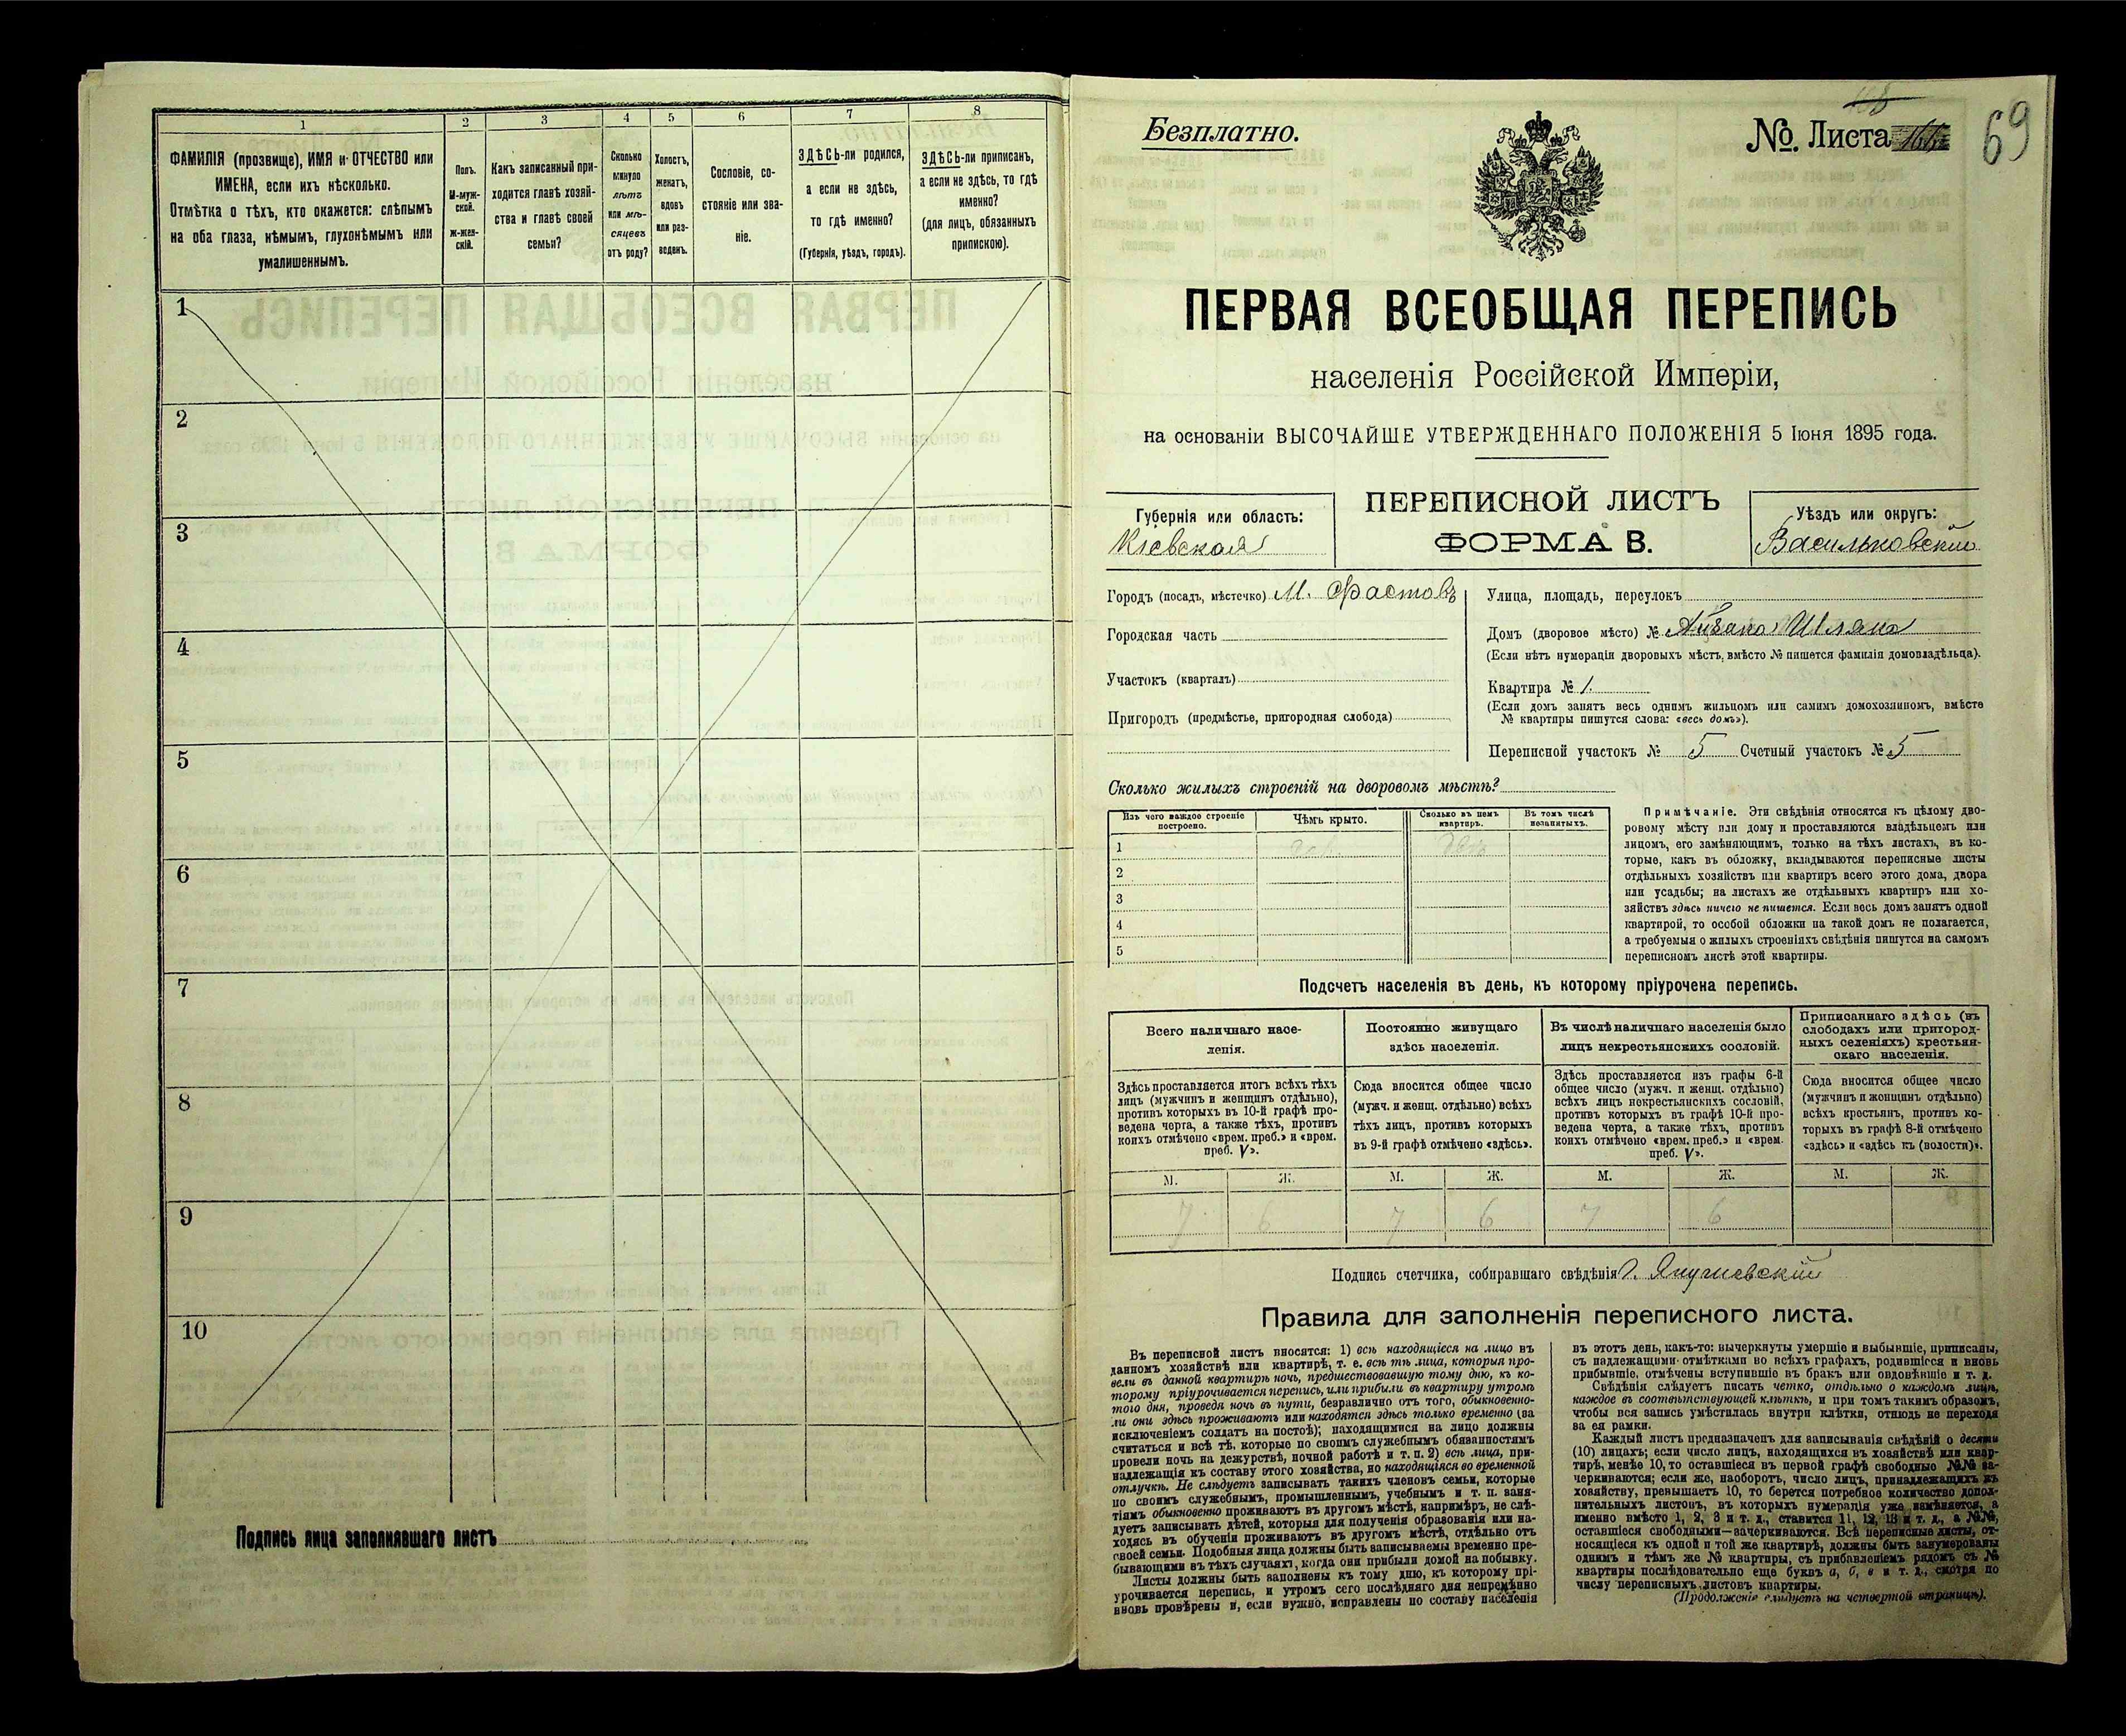 1
2
3
4
5
6
7
8
ФАМИЛІЯ (прозвище), ИМЯ и ОТЧЕСТВО или
ИМЕНА, если ихъ нѣсколько.
Отмѣтка о тѣхъ, кто окажется: слѣпымъ
на оба глаза, нѣмымъ, глухонѣмымъ или
умалишеннымъ.
Полъ.
М-муж-
ской.
Ж-жен-
скій.
Какъ записанный при-
ходится главѣ хозяй-
ства и главѣ своей
семьи?
Сколько
минуло
лѣтъ
или мѣ-
сяцевъ
отъ роду?
Холостъ,
женатъ,
вдовъ
или раз-
веденъ.
Сословіе, со-
стояніе или зва-
ніе.
ЗДѢСЬ-ли родился,
а если не здѣсь,
то гдѣ именно?
(Губернія, уѣздъ, городъ).
ЗДѢСЬ-ли приписанъ,
а если не здѣсь, то гдѣ
именно?
(для лицъ, обязанныхъ
припискою).
1
2
3
4
5
6
7
8
9
10
Подпись лица заполнявшаго листъ
Безплатно.
№. Листа
69
ПЕРВАЯ ВСЕОБЩАЯ ПЕРЕПИСЬ
населенія Россійской Имперіи,
на основаніи ВЫСОЧАЙШЕ УТВЕРЖДЕННАГО ПОЛОЖЕНІЯ 5 Іюня 1895 года.
Губернія или область:
Кіевская
ПЕРЕПИСНОЙ ЛИСТЪ
ФОРМА В.
Уѣздъ или округъ:
Васильковскій
Городъ (посадъ, мѣстечко) М. Фастовъ
Городская часть
Участокъ (кварталъ)
Пригородъ (предмѣстье, пригородная слобода)
Улица, площадь, переулокъ
Домъ (дворовое мѣсто) №
(Если нѣтъ нумераціи дворовыхъ мѣстъ, вмѣсто № пишется фамилія домовладѣльца).
Квартира № 1.
(Если домъ занятъ весь однимъ жильцомъ или самимъ домохозяиномъ, вмѣсто
№ квартиры пишутся слова: «весь домъ»).
Переписной участокъ № 5 Счетный участокъ № 5
Сколько жилыхъ строеній на дворовомъ мѣстѣ?
Изъ чего каждое строеніе
построено.
Чѣмъ крыто.
Сколько въ немъ
квартиръ.
Въ томъ числѣ
незанятыхъ.
1
2
3
4
5
Примѣчаніе. Эти свѣдѣнія относятся къ цѣлому дво-
ровому мѣсту или дому и проставляются владѣльцемъ или
лицомъ, его замѣняющимъ, только на тѣхъ листахъ, въ ко-
торые, какъ въ обложку, вкладываются переписные листы
отдѣльныхъ хозяйствъ или квартиръ всего этого дома, двора
или усадьбы; на листахъ же отдѣльныхъ квартиръ или хо-
зяйствъ здѣсь ничего не пишется. Если весь домъ занятъ одной
квартирой, то особой обложки на такой домъ не полагается,
а требуемыя о жилыхъ строеніяхъ свѣдѣнія пишутся на самомъ
переписномъ листѣ этой квартиры.
Подсчетъ населенія въ день, къ которому пріурочена перепись.
Всего наличнаго насе-
ленія.
Постоянно живущаго
здѣсь населенія.
Въ числѣ наличнаго населенія было
лицъ некрестьянскихъ сословій.
Приписаннаго здѣсь (въ
слободахъ или пригород-
ныхъ селеніяхъ) крестьян-
скаго населенія.
Здѣсь проставляется итогъ всѣхъ тѣхъ
лицъ (мужчинъ и женщинъ отдѣльно),
противъ которыхъ въ 10-й графѣ про-
ведена черта, а также тѣхъ, противъ
коихъ отмѣчено «врем. преб.» и «врем.
преб. V».
Сюда вносится общее число
(мужч. и женщ. отдѣльно) всѣхъ
тѣхъ лицъ, противъ которыхъ
въ 9-й графѣ отмѣчено «здѣсь».
Здѣсь проставляется изъ графы 6-й
общее число (мужч. и женщ. отдѣльно)
всѣхъ лицъ некрестьянскихъ сословій,
противъ которыхъ въ графѣ 10-й про-
ведена черта, а также тѣхъ, противъ
коихъ отмѣчено «врем. преб.» и «врем.
преб. V».
Сюда вносится общее число
(мужчинъ и женщинъ отдѣльно)
всѣхъ крестьянъ, противъ ко-
торыхъ въ графѣ 8-й отмѣчено
«здѣсь» и «здѣсь къ (волости)».
М. Ж. М. Ж. М. Ж. М. Ж.
7 6 7 6 7 6
Подпись счетчика, собиравшаго свѣдѣнія
Правила для заполненія переписного листа.
Въ переписной листъ вносятся: 1) всѣ находящіеся на лицо въ
данномъ хозяйствѣ или квартирѣ, т. е. всѣ тѣ лица, которыя про-
вели въ данной квартирѣ ночь, предшествовавшую тому дню, къ ко-
торому пріурочивается перепись, или прибыли въ квартиру утромъ
того дня, проведя ночь въ пути, безразлично отъ того, обыкновенно-
ли они здѣсь проживаютъ или находятся здѣсь только временно (за
исключеніемъ солдатъ на постоѣ); находящимися на лицо должны
считаться и всѣ тѣ, которые по своимъ служебнымъ обязанностямъ
провели ночь на дежурствѣ, ночной работѣ и т. п. 2) всѣ лица, при-
надлежащія къ составу этого хозяйства, но находящіяся во временной
отлучкѣ. Не слѣдуетъ записывать такихъ членовъ семьи, которые
по своимъ служебнымъ, промышленнымъ, учебнымъ и т. п. заня-
тіямъ обыкновенно проживаютъ въ другомъ мѣстѣ, напримѣръ, не слѣ-
дуетъ записывать дѣтей, которыя для полученія образованія или на-
ходясь въ обученіи проживаютъ въ другомъ мѣстѣ, отдѣльно отъ
своей семьи. Подобныя лица должны быть записываемы временно пре-
бывающими въ тѣхъ случаяхъ, когда они прибыли домой на побывку.
Листы должны быть заполнены къ тому дню, къ которому прі-
урочивается перепись, и утромъ сего послѣдняго дня непремѣнно
вновь провѣрены и, если нужно, исправлены по составу населенія
въ этотъ день, какъ-то: вычеркнуты умершіе и выбывшіе, приписаны,
съ надлежащими отмѣтками во всѣхъ графахъ, родившіеся и вновь
прибывшіе, отмѣчены вступившіе въ бракъ или овдовѣвшіе и т. д.
Свѣдѣнія слѣдуетъ писать четко, отдѣльно о каждомъ лицѣ,
каждое въ соотвѣтствующей клѣткѣ, и при томъ такимъ образомъ,
чтобы вся запись умѣстилась внутри клѣтки, отнюдь не переходя
за ея рамки.
Каждый листъ предназначенъ для записыванія свѣдѣній о десяти
(10) лицахъ; если число лицъ, находящихся въ хозяйствѣ или квар-
тирѣ, менѣе 10, то оставшіеся въ первой графѣ свободные №№ за-
черкиваются; если же, наоборотъ, число лицъ, принадлежащихъ къ
хозяйству, превышаетъ 10, то берется потребное количество допол-
нительныхъ листовъ, въ которыхъ нумерація уже измѣняется, а
именно вмѣсто 1, 2, 3 и т. д., ставится 11, 12, 13 и т. д., а №№,
оставшіеся свободными—зачеркиваются. Всѣ переписные листы, от-
носящіеся къ одной и той же квартирѣ, должны быть занумерованы
однимъ и тѣмъ же № квартиры, съ прибавленіемъ рядомъ съ №
квартиры послѣдовательно еще буквъ а, б, в и т. д., смотря по
числу переписныхъ листовъ квартиры.
(Продолженіе слѣдуетъ на четвертой страницѣ).